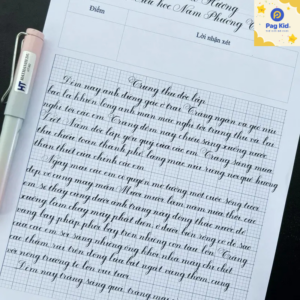 Hương
Văn học Nam Phương
Pag Kid
Điểm
Lời nhận xét
Trung thu độc lập
Đêm nay anh đứng gác ở trại. Trăng ngàn và gió núi
bao la khiến lòng anh man mác nghĩ tới trung thu và
nghĩ tới các em. Trăng đêm nay soi sáng xuống nước
Việt Nam độc lập yêu quý của các em. Trăng sáng mùa
thu chiếu toàn thành phố, làng mạc, núi rừng, nơi quê hương
thân thiết của các em
Ngày mai, các em có quyền mơ tưởng một cuộc sống tươi
đẹp vô cùng. Mươi mười lăm năm nữa thôi, các
em sẽ thấy cũng dưới ánh trăng này, dòng thác nước đổ
xuống làm chạy máy phát điện; ở giữa biển rộng, cờ đỏ sao
vàng bay phấp phới bay trên những con tàu lớn. Trăng
của các em sẽ soi sáng những ống khói nhà máy chi chít,
cao thẳm, rải trên đồng lúa bát ngát vàng thơm, cùng
và nông trường to lớn, vui tươi.
Đêm nay, trăng sáng quá, trăng mai